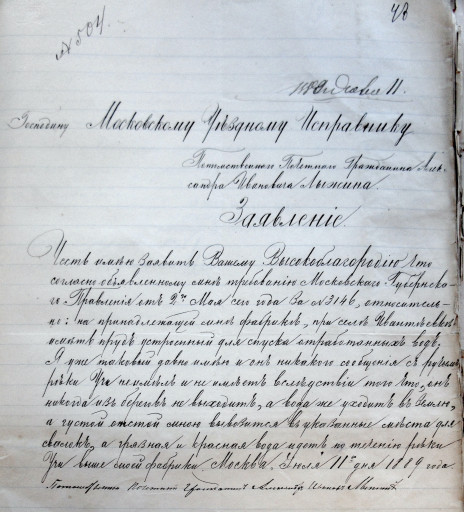 48
№ 504.
1889 Июля 11.
Господину Московскому Уѣздному Исправнику
Потомственнаго Почетнаго Гражданина Алек-
сандра Ивановича Лыжина
Заявленіе.
Честь имѣю заявить Вашему Высокоблагородію что
согласно объявленному мнѣ требованію Московскаго Губернска-
го Правленія отъ 2го Мая сего года за №3146, относитель-
но: на принадлежащей мнѣ фабрикѣ, при селѣ Ивантѣевкѣ
имѣть прудъ устроенный для спуска отработанныхъ водъ,
Я уже таковый давно имѣю и онъ никакого сообщенія съ русломъ
рѣки Учи не имѣлъ и не имѣетъ вслѣдствіи того что, онъ
никогда изъ береговъ не выходитъ, а вода же уходитъ въ землю,
а густой отстой мною вывозится въ указанные мѣста для
свалокъ, а грязная и красная вода идетъ по теченію рѣки
Учи выше моей фабрики Москва. Іюля 11го дня 1889 года.
Потомственный Почетный Гражданинъ Александръ Ивановъ Лыжинъ